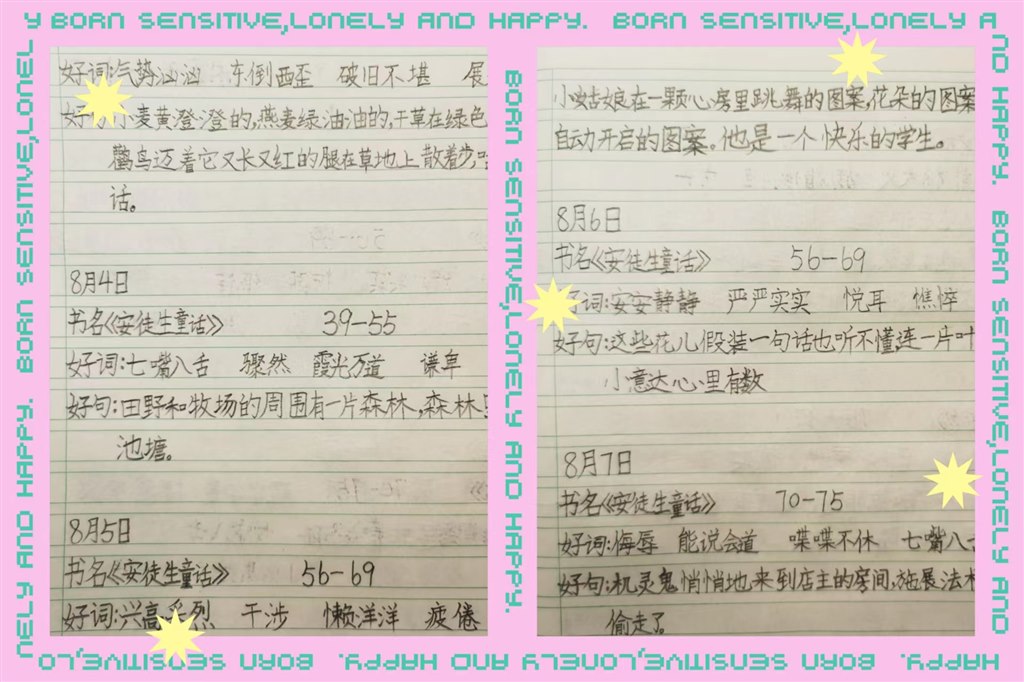 Y BORN SENSITIVE,LONELY AND HAPPY. BORN SENSITIVE,LONELY A
ND HAPPY. BORN SENSITIVE,LONELY AND
HAPPY. BORN SENSITIVE,LONELY AND HAPPY. BORN SENSITIVE,LO
NELY AND HAPPY. BORN SENSITIVE,LONEL
BORN SENSITIVE,LONELY AND HAPPY.
好词:气势汹汹 东倒西歪 破旧不堪 展
小麦黄澄澄的,燕麦绿油油的,干草在绿色
鹳鸟迈着它又长又红的腿在草地上散着步,
话。
8月4日
书名《安徒生童话》 39-55
好词:七嘴八舌 骤然 霞光万道 谦卑
好句:田野和牧场的周围有一片森林,森林
池塘。
8月5日
书名《安徒生童话》 56-69
好词:兴高采烈 干涉 懒洋洋 疲倦
小姑娘在一颗心房里跳舞的图案,花朵的图案
自动开启的图案。他是一个快乐的学生。
8月6日
书名《安徒生童话》 56-69
好词:安安静静 严严实实 悦耳 憔悴
好句:这些花儿假装一句话也听不懂连一片叶
小意达心里有数
8月7日
书名《安徒生童话》 70-75
好词:侮辱 能说会道 喋喋不休 七嘴八
好句:机灵鬼悄悄地来到店主的房间,施展法
偷走了